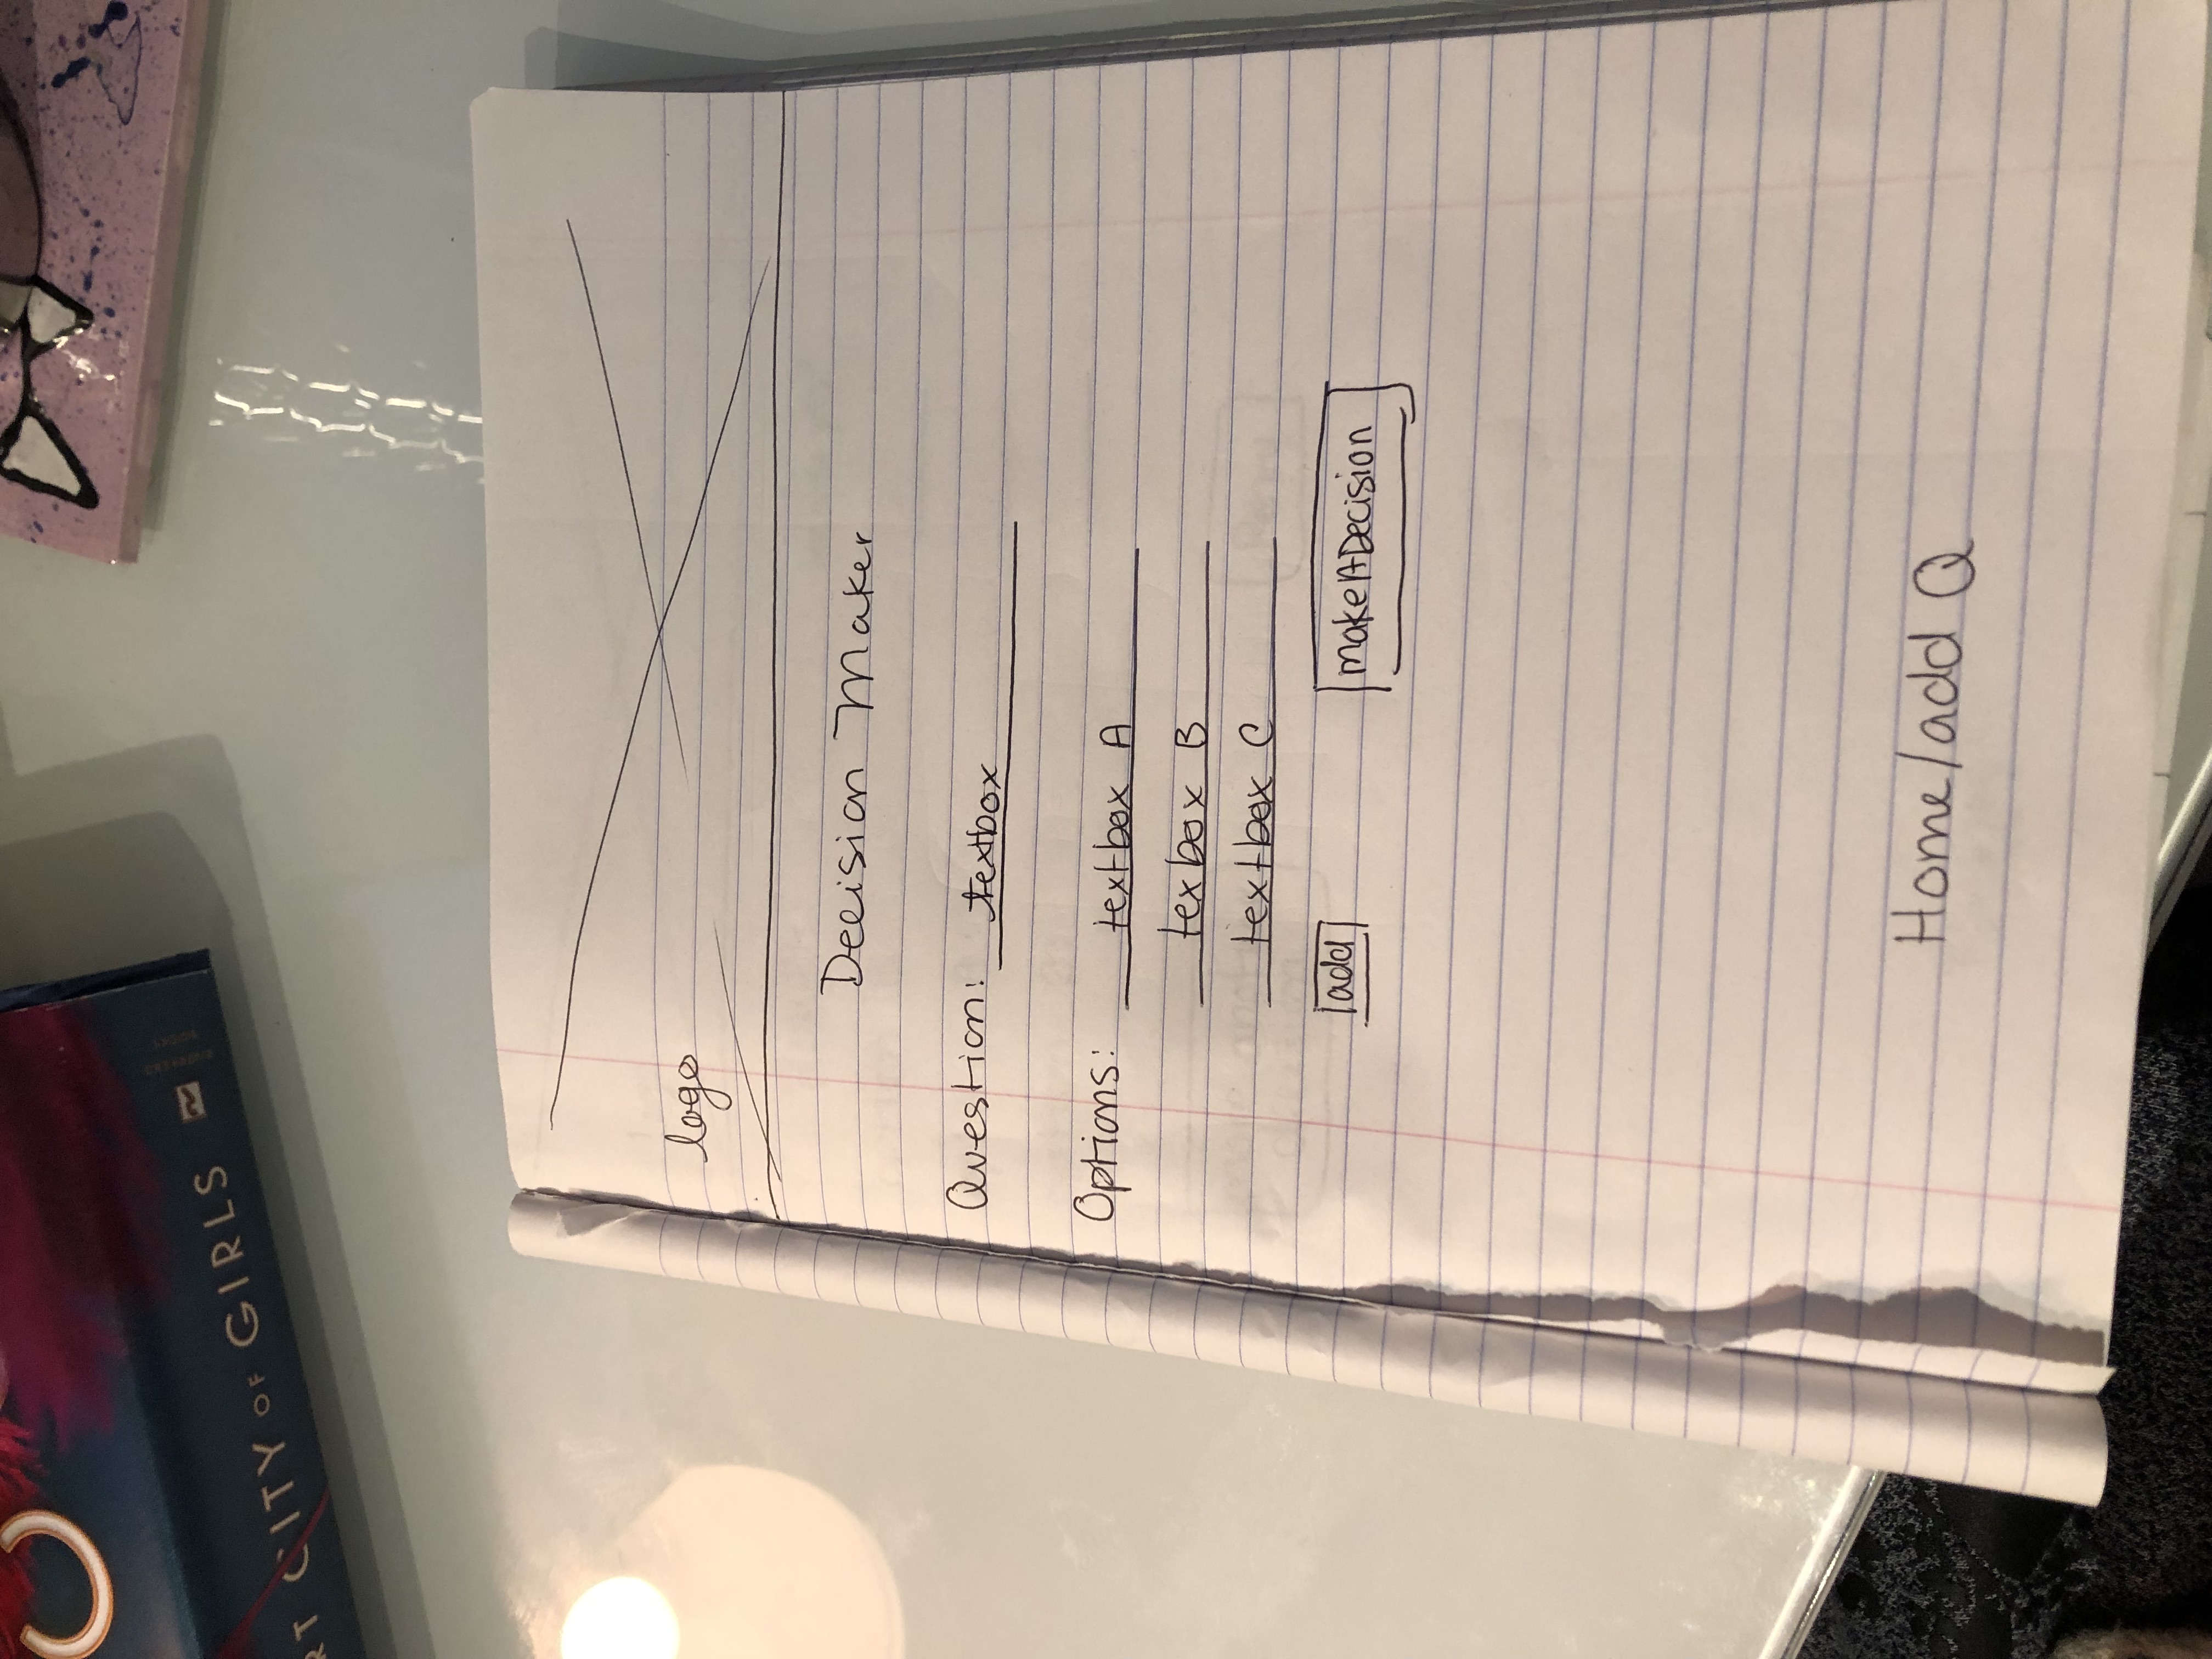 RT CITY OF GIRLS
logo
Decision Maker
Question: textbox
Options: textbox A
texbox B
textbox C
add makeADecision
Home/add Q